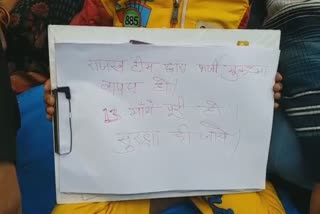 885
राजस्व टीम द्वारा फर्जी मुकदमा
वापस हो।
13 मांगे पूरी हो।
सुरक्षा दी जावे।